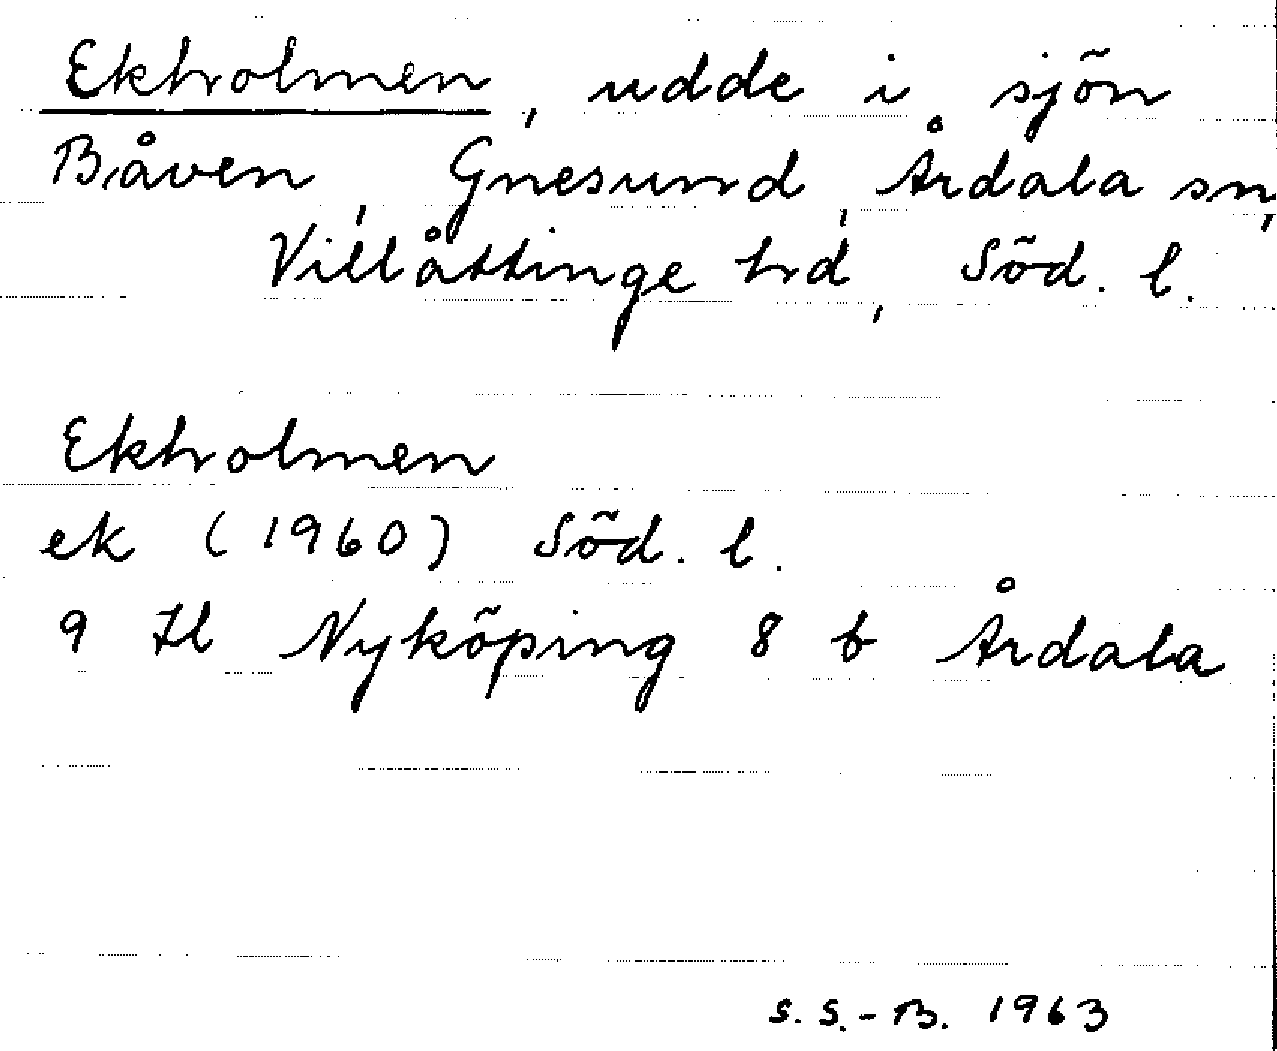 Ekholmen, udde i sjön
Båven, Gnesund, Årdala sn,
Villåttinge hd, Söd. l.
Ekholmen
ek (1960) Söd. l.
9 Hl Nyköping 8 b Årdala
S. S.-B. 1963